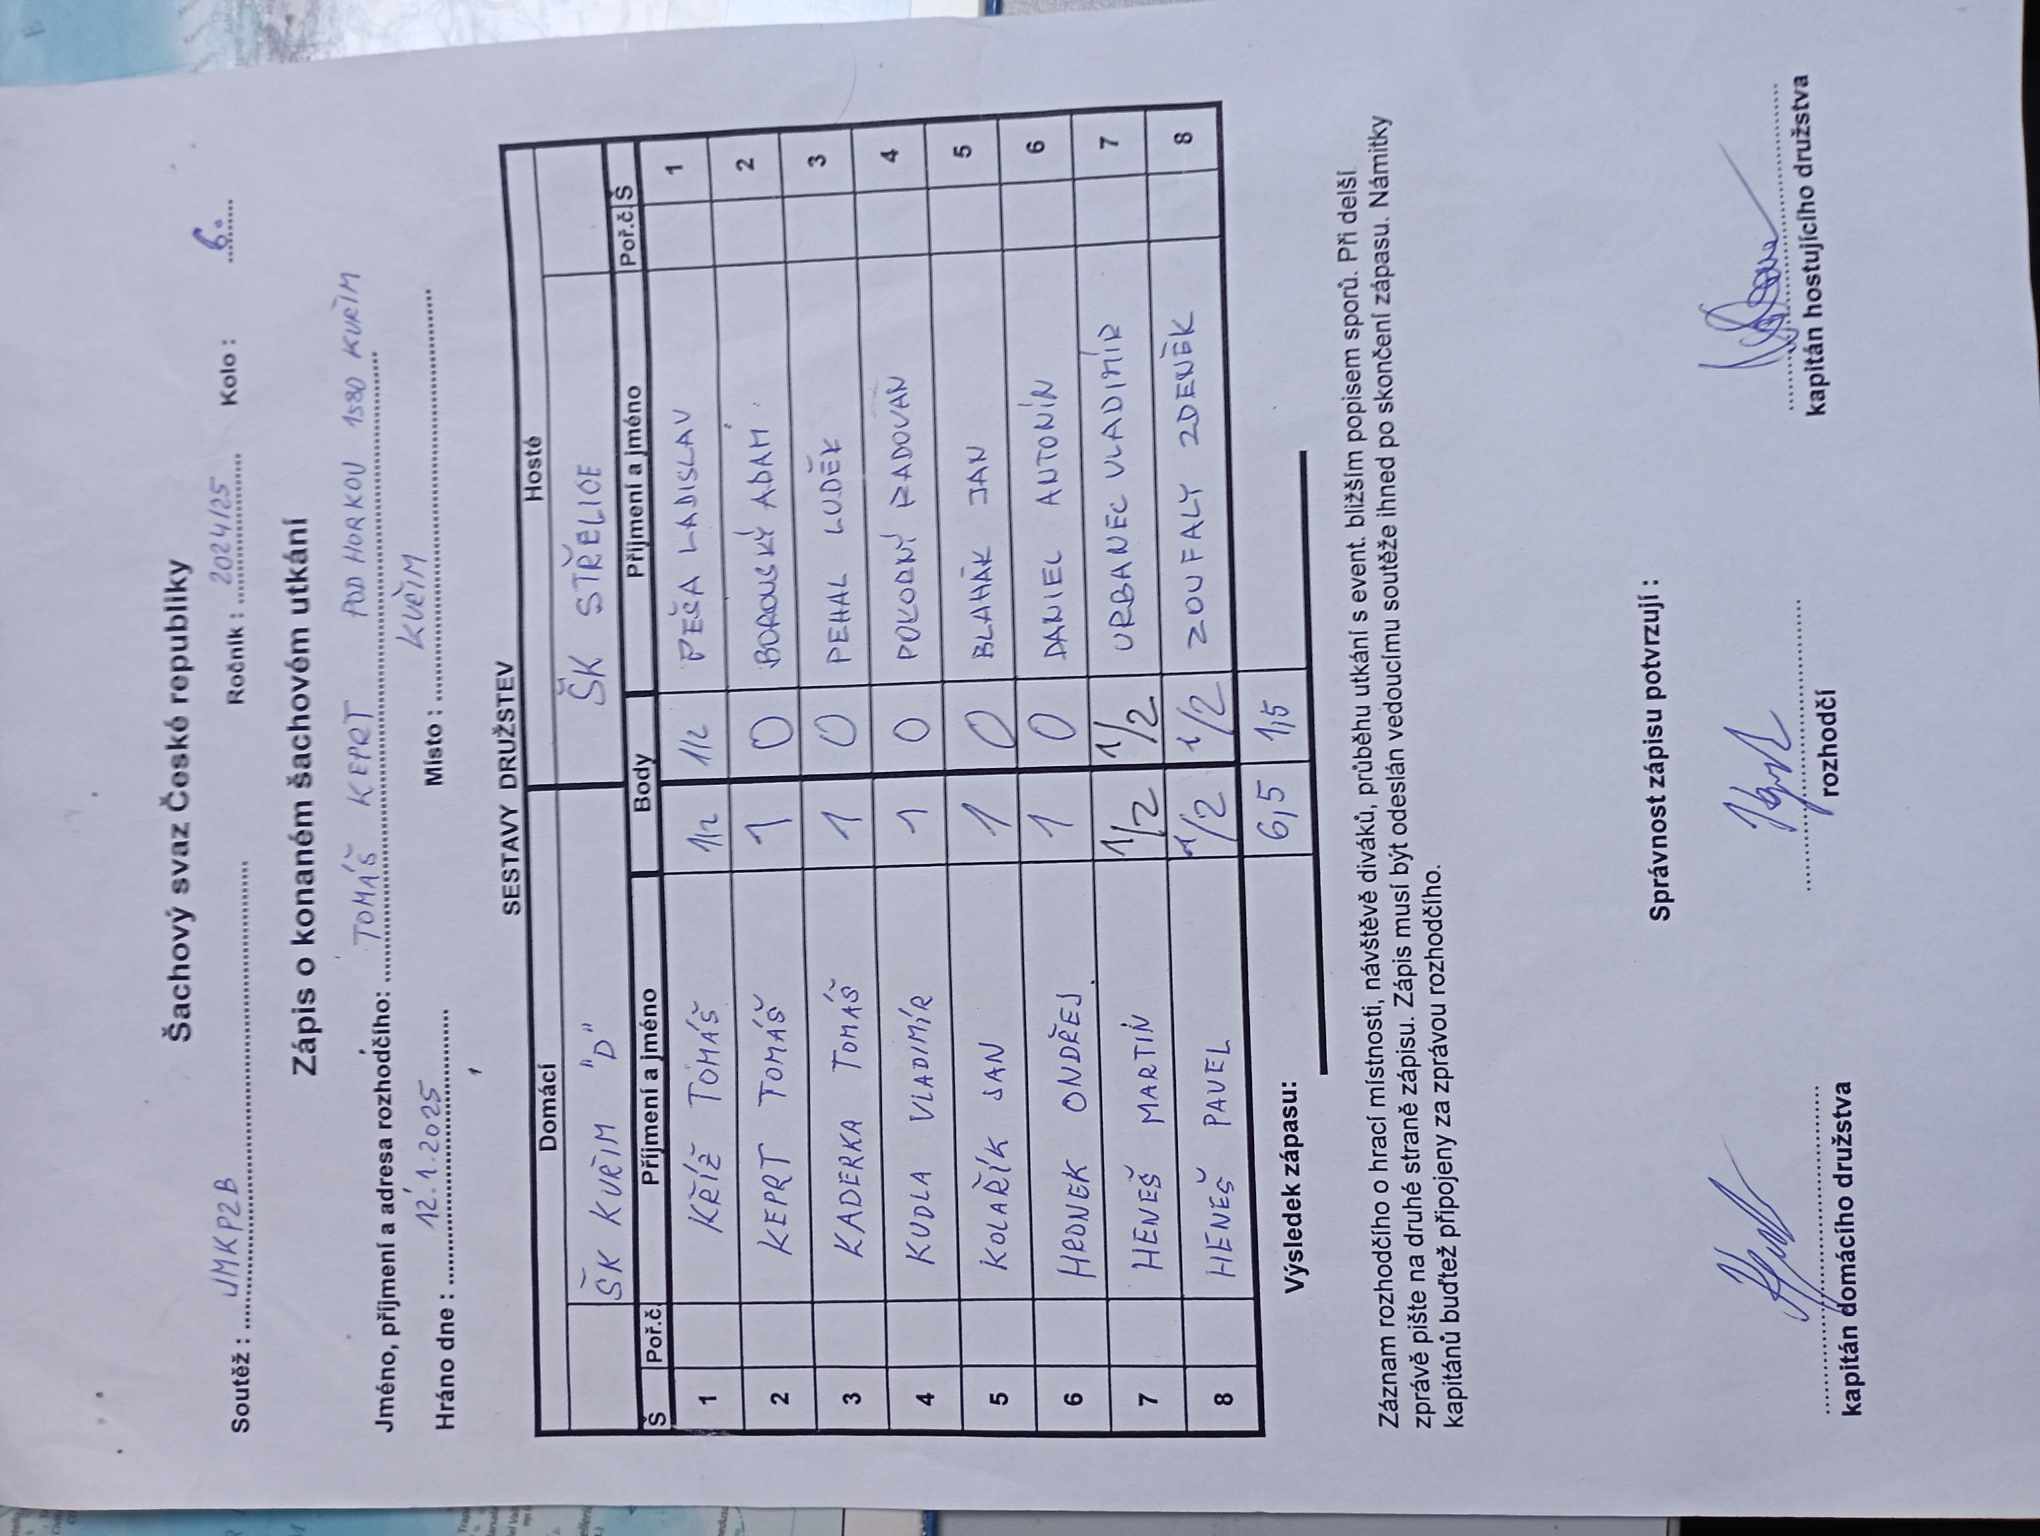 Šachový svaz České republiky
Soutěž : JMKP2B Ročník : 2024/25 Kolo : 6.
Zápis o konaném šachovém utkání
Jméno, příjmení a adresa rozhodčího: TOMÁŠ KEPRT POD HORKOU 1580 KUŘIM
Hráno dne : 12.1.2025 Místo : KUŘIM
SESTAVY DRUŽSTEV
Domácí Hosté
ŠK KUŘIM "D" ŠK STŘELICE
Š Poř.č. Příjmení a jméno Body Příjmení a jméno Poř.č Š
1 KŘÍŽ TOMÁŠ 1/2 1/2 PEŠA LADISLAV 1
2 KEPRT TOMÁŠ 1 0 BOROVSKÝ ADAM 2
3 KADERKA TOMÁŠ 1 0 PEHAL LUDĚK 3
4 KUDLA VLADIMÍR 1 0 RADOVAN 4
5 KOLAŘÍK JAN 1 0 BLAHÁK JAN 5
6 HRDNEK ONDŘEJ 1 0 DANIEL ANTONÍN 6
7 HENEŠ MARTIN 1/2 1/2 URBANEC VLADIMÍR 7
8 HENEŠ PAVEL 1/2 1/2 ZOUFALY ZDENĚK 8
Výsledek zápasu: 6,5 1,5
Záznam rozhodčího o hrací místnosti, návštěvě diváků, průběhu utkání s event. bližším popisem sporů. Při delší
zprávě pište na druhé straně zápisu. Zápis musí být odeslán vedoucímu soutěže ihned po skončení zápasu. Námitky
kapitánů buďtež připojeny za zprávou rozhodčího.
Správnost zápisu potvrzují :
kapitán domácího družstva rozhodčí kapitán hostujícího družstva